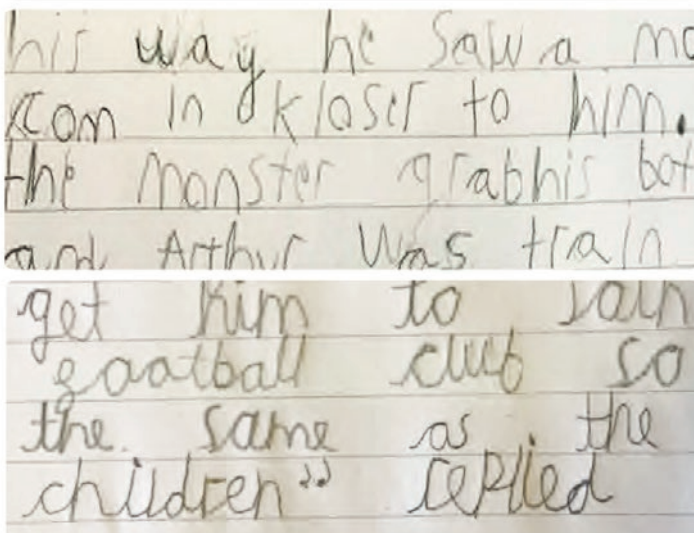 his way he saw a mo
com in kloser to him.
the monster grabhis bot
and Arthur was train
get him to join
football club so
the same as the
children” replied